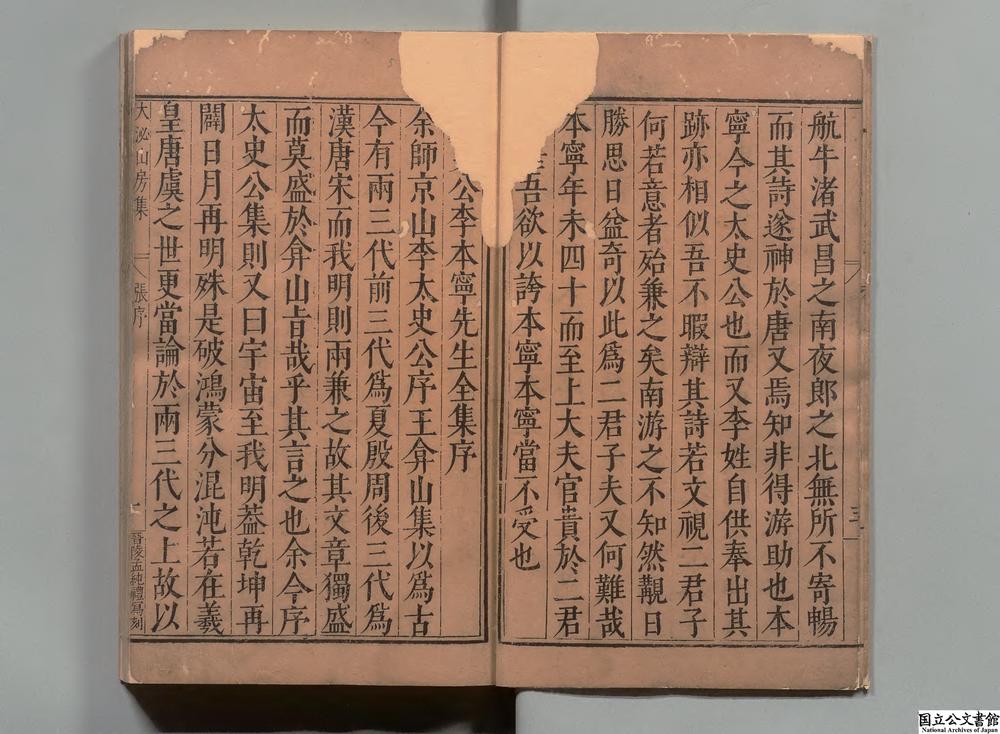 航牛渚武昌之南夜郎之北無所不寄暢
而其詩遂神於唐又焉知非得游助也本
寧今之太史公也而又李姓自供奉出其
跡亦相似吾不暇辯其詩若文視二君子
何若意者殆兼之矣南游之不知然覯日
勝思日益奇以此為二君子夫又何難哉
本寧年未四十而至上大夫官貴於二君
吾欲以誇本寧本寧當不受也
三
公李本寧先生全集序
余師京山李太史公序王弇山集以為古
今有兩三代前三代為夏殷周後三代為
漢唐宋而我明則兩兼之故其文章獨盛
而莫盛於弇山旨哉乎其言之也余今序
太史公集則又曰宇宙至我明蓋乾坤再
闢日月再明殊是破鴻蒙分混沌若在羲
皇唐虞之世更當論於兩三代之上故以
大泌山房集
張序
一
晉陵孟純禮寫刻
国立公文書館
National Archives of Japan